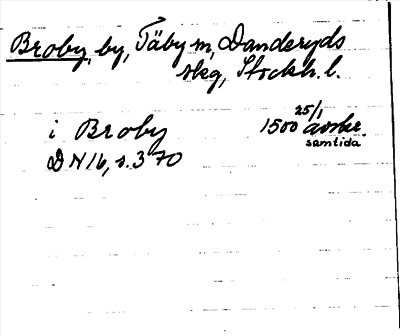 Broby, by, Täby sn, Danderyds
skg, Stockh. l.
i Broby 1500 25/1 avskr.
samtida
DN 16, s. 370